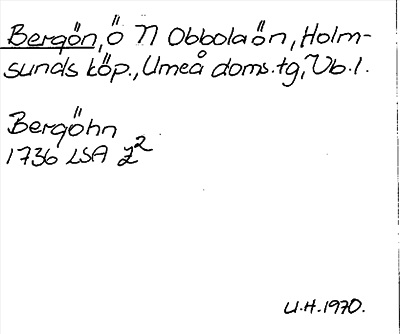 Bergön, ö N Obbolaön, Holm-
sunds köp., Umeå doms.tg, Vb.l.
Bergöhn
1736 LSA Z²
U.H. 1970.